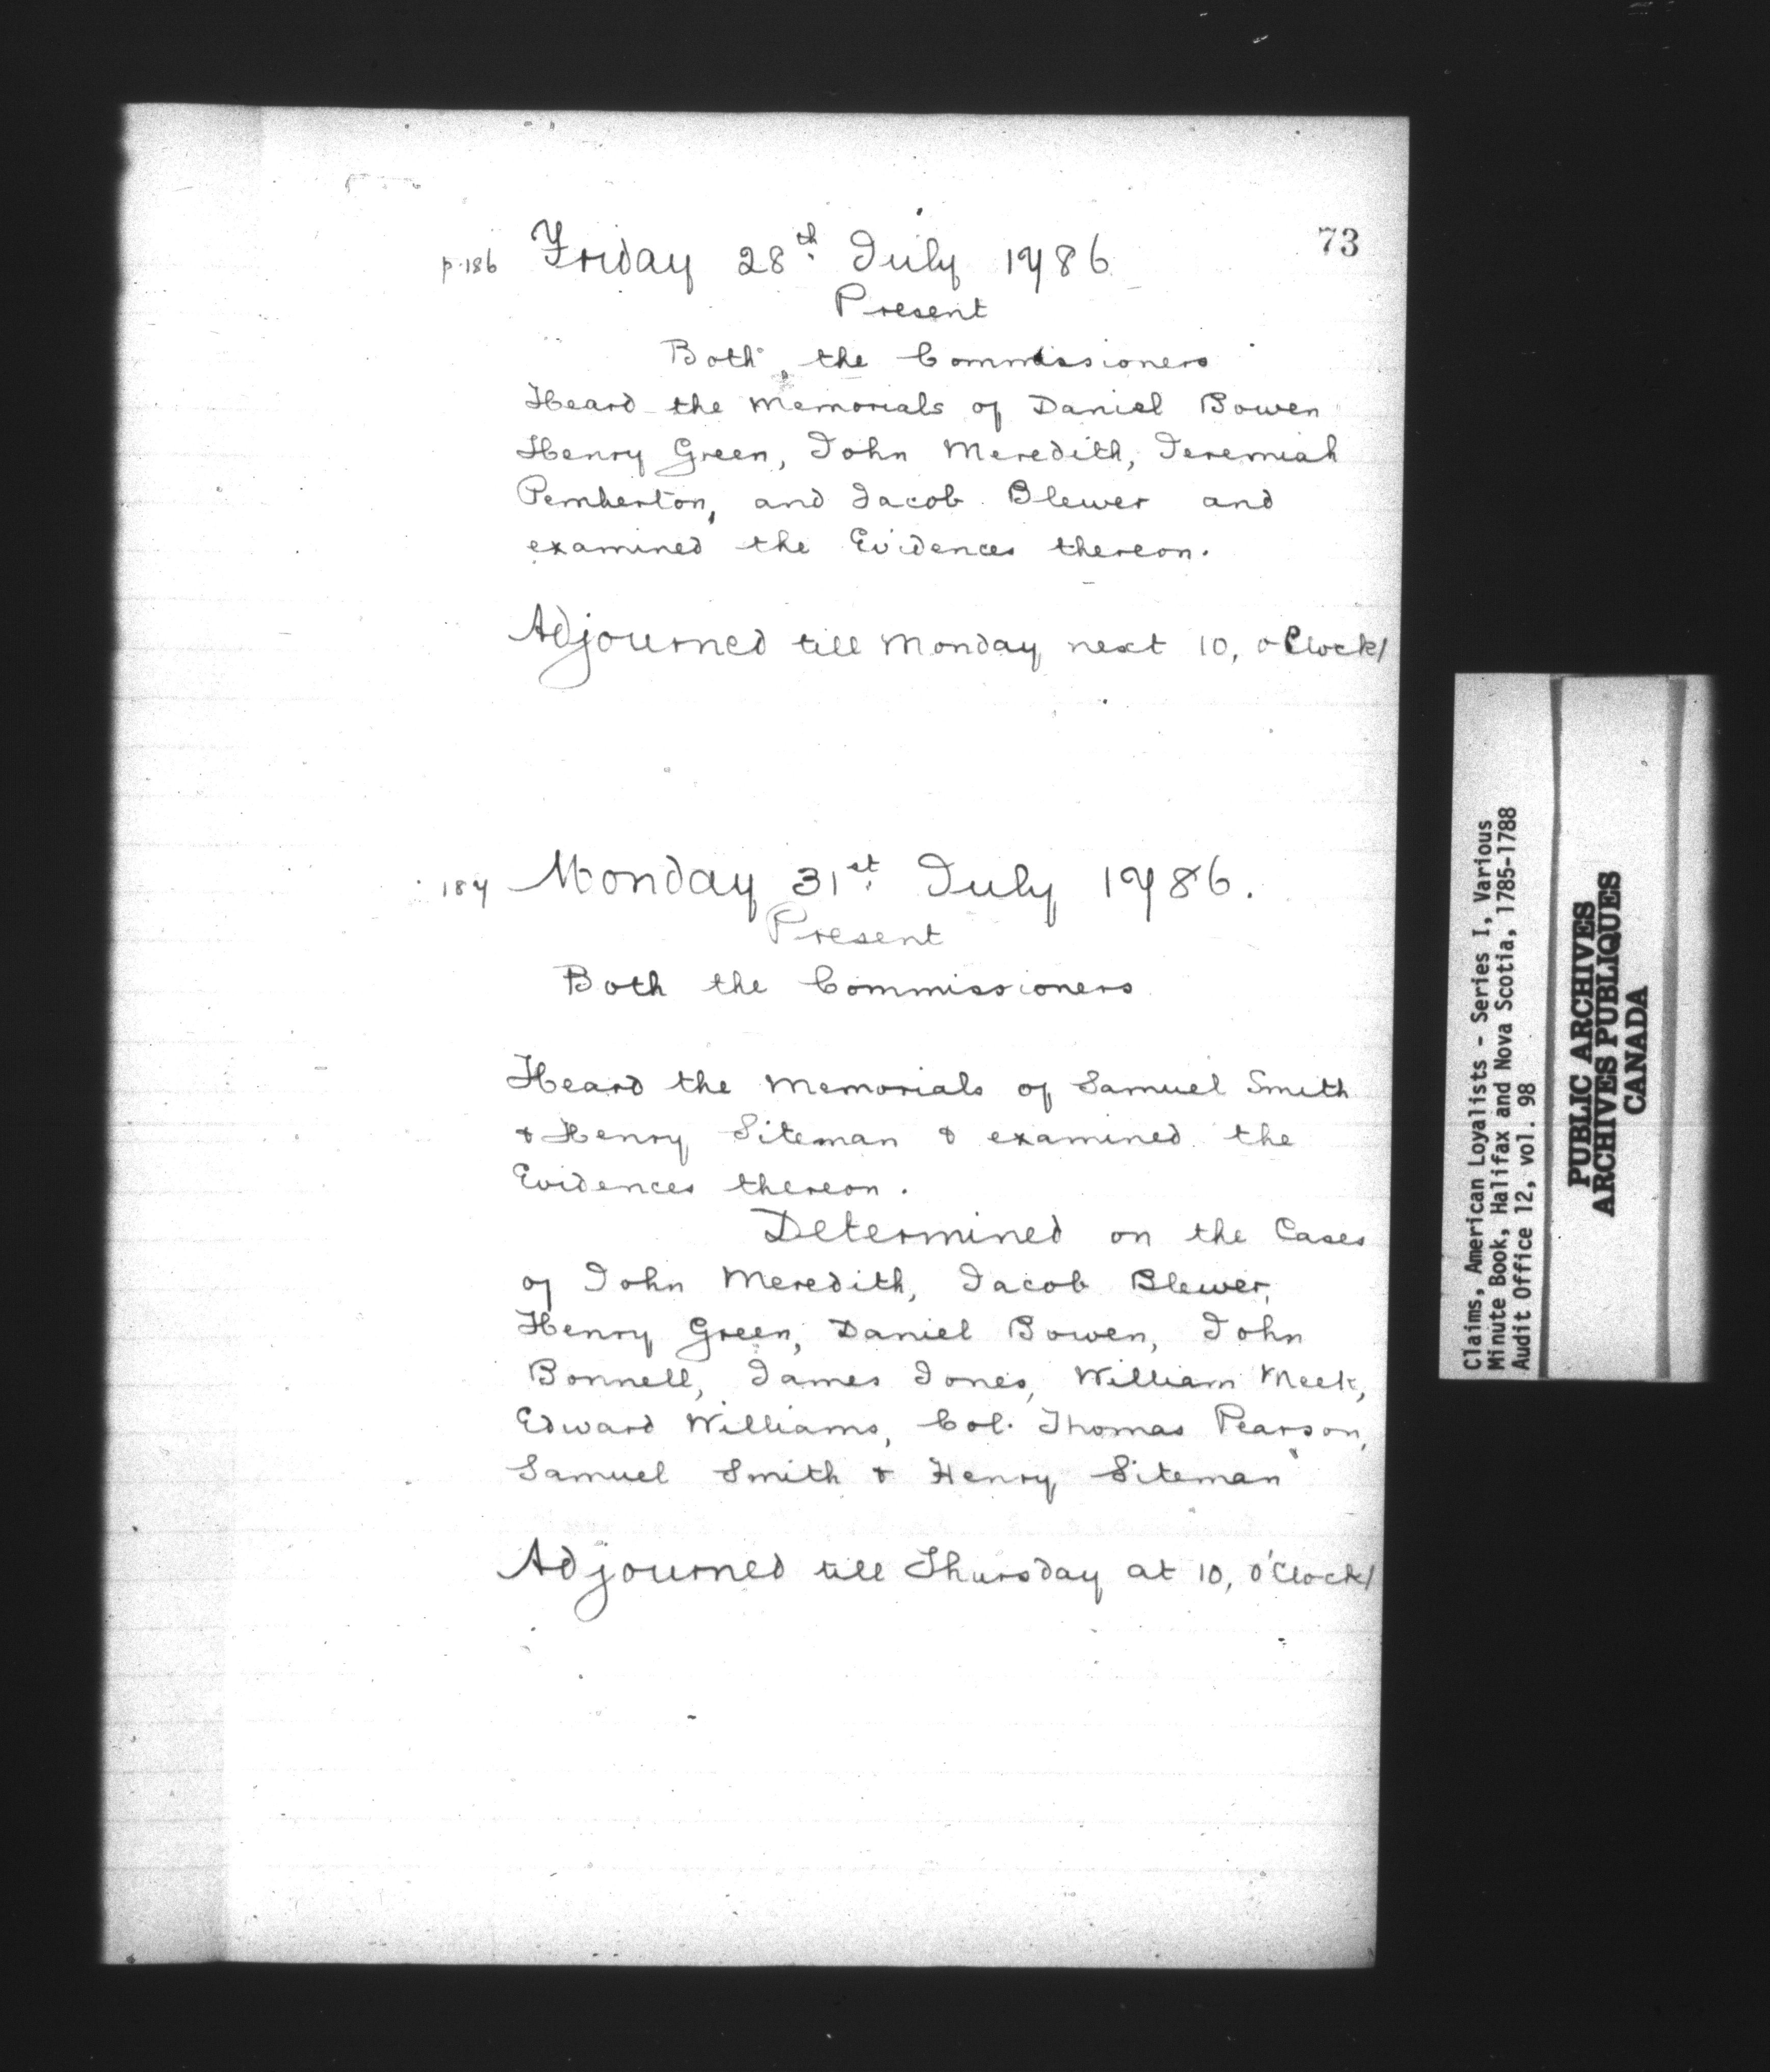 73
p. 186 Friday 28th. July 1786
Present
Both the Commissioners
Heard the Memorials of Daniel Bowen
Henry Green, John Meredith, Jeremiah
Pemberton, and Jacob Blewer and
examined the Evidences thereon.
Adjourned till Monday next 10, o'Clock/
187 Monday 31st. July 1786.
Present
Both the Commissioners
Heard the Memorials of Samuel Smith
& Henry Siteman & examined the
Evidences thereon.
Determined on the Cases
of John Meredith, Jacob Blewer,
Henry Green, Daniel Bowen, John
Bonnell, James Jones, William Meek,
Edward Williams, Col. Thomas Pearson,
Samuel Smith & Henry Siteman
Adjourned till Thursday at 10, o'Clock/
Claims, American Loyalists - Series I, Various
Minute Book, Halifax and Nova Scotia, 1785-1788
Audit Office 12, vol. 98
PUBLIC ARCHIVES
ARCHIVES PUBLIQUES
CANADA